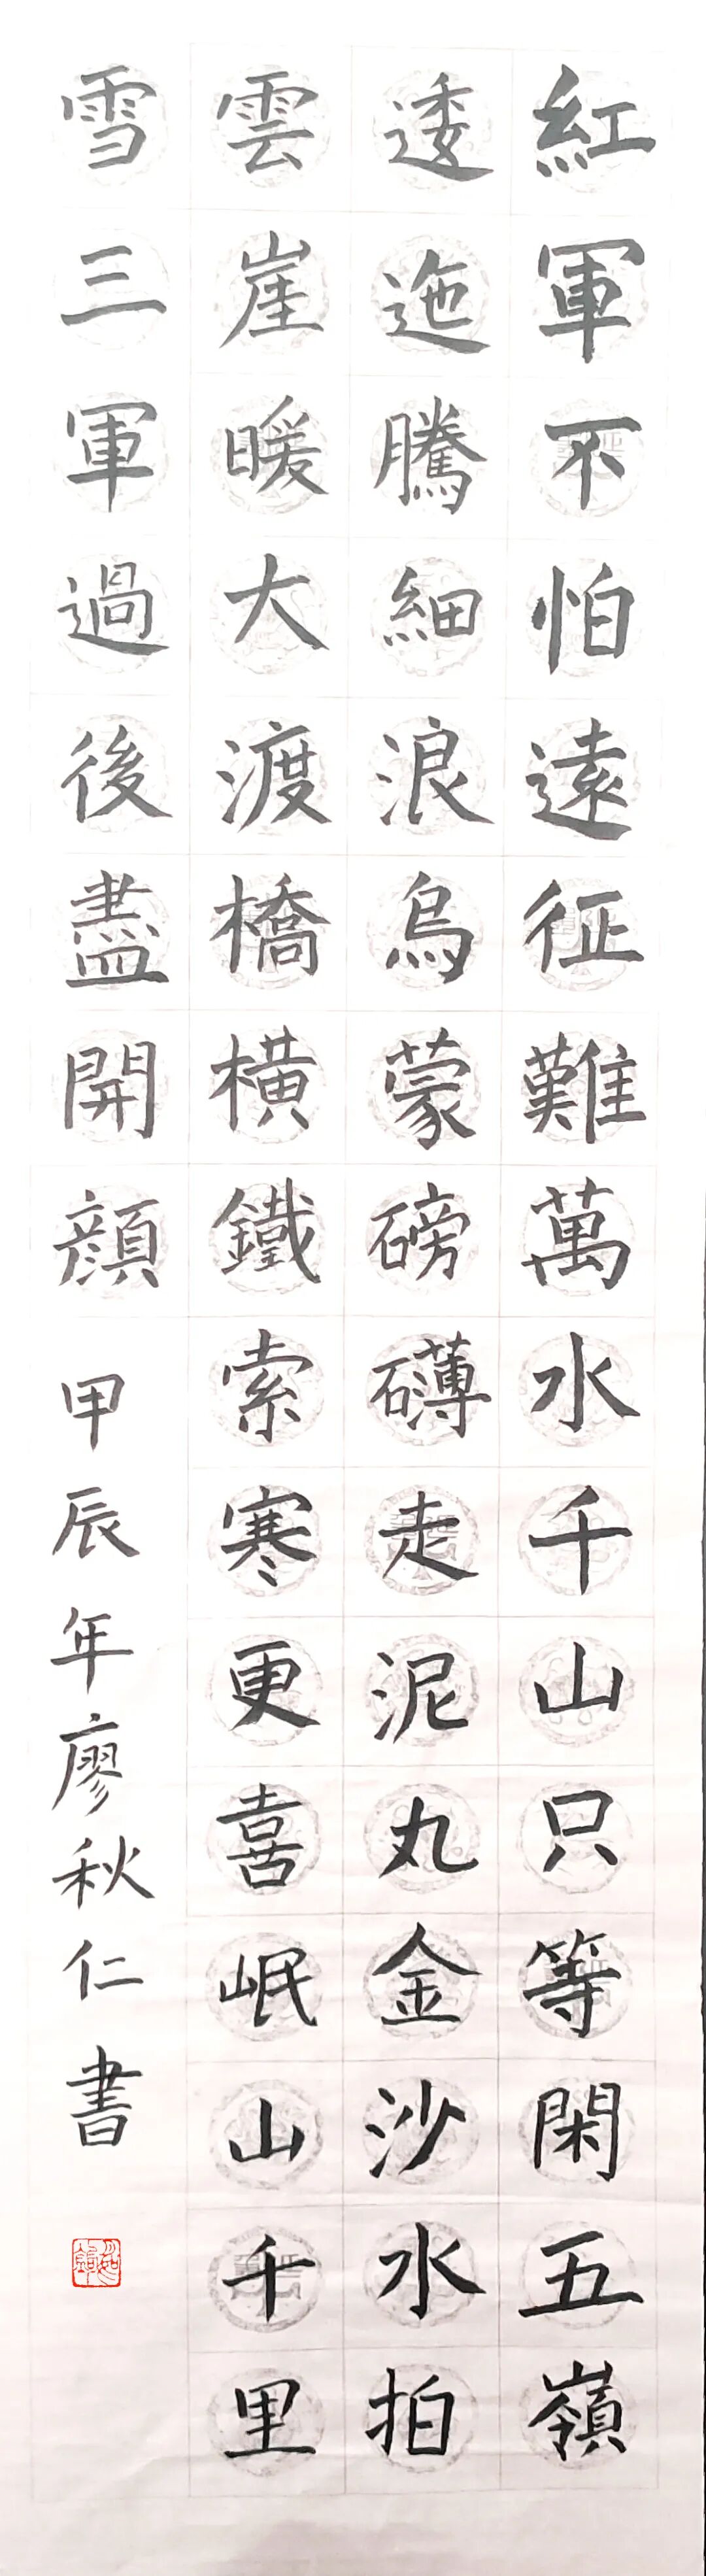 紅軍不怕遠征難萬水千山只等閑五嶺
逶迤騰細浪烏蒙磅礴走泥丸金沙水拍
雲崖暖大渡橋橫鐵索寒更喜岷山千里
雪三軍過後盡開顔
甲辰年廖秋仁書